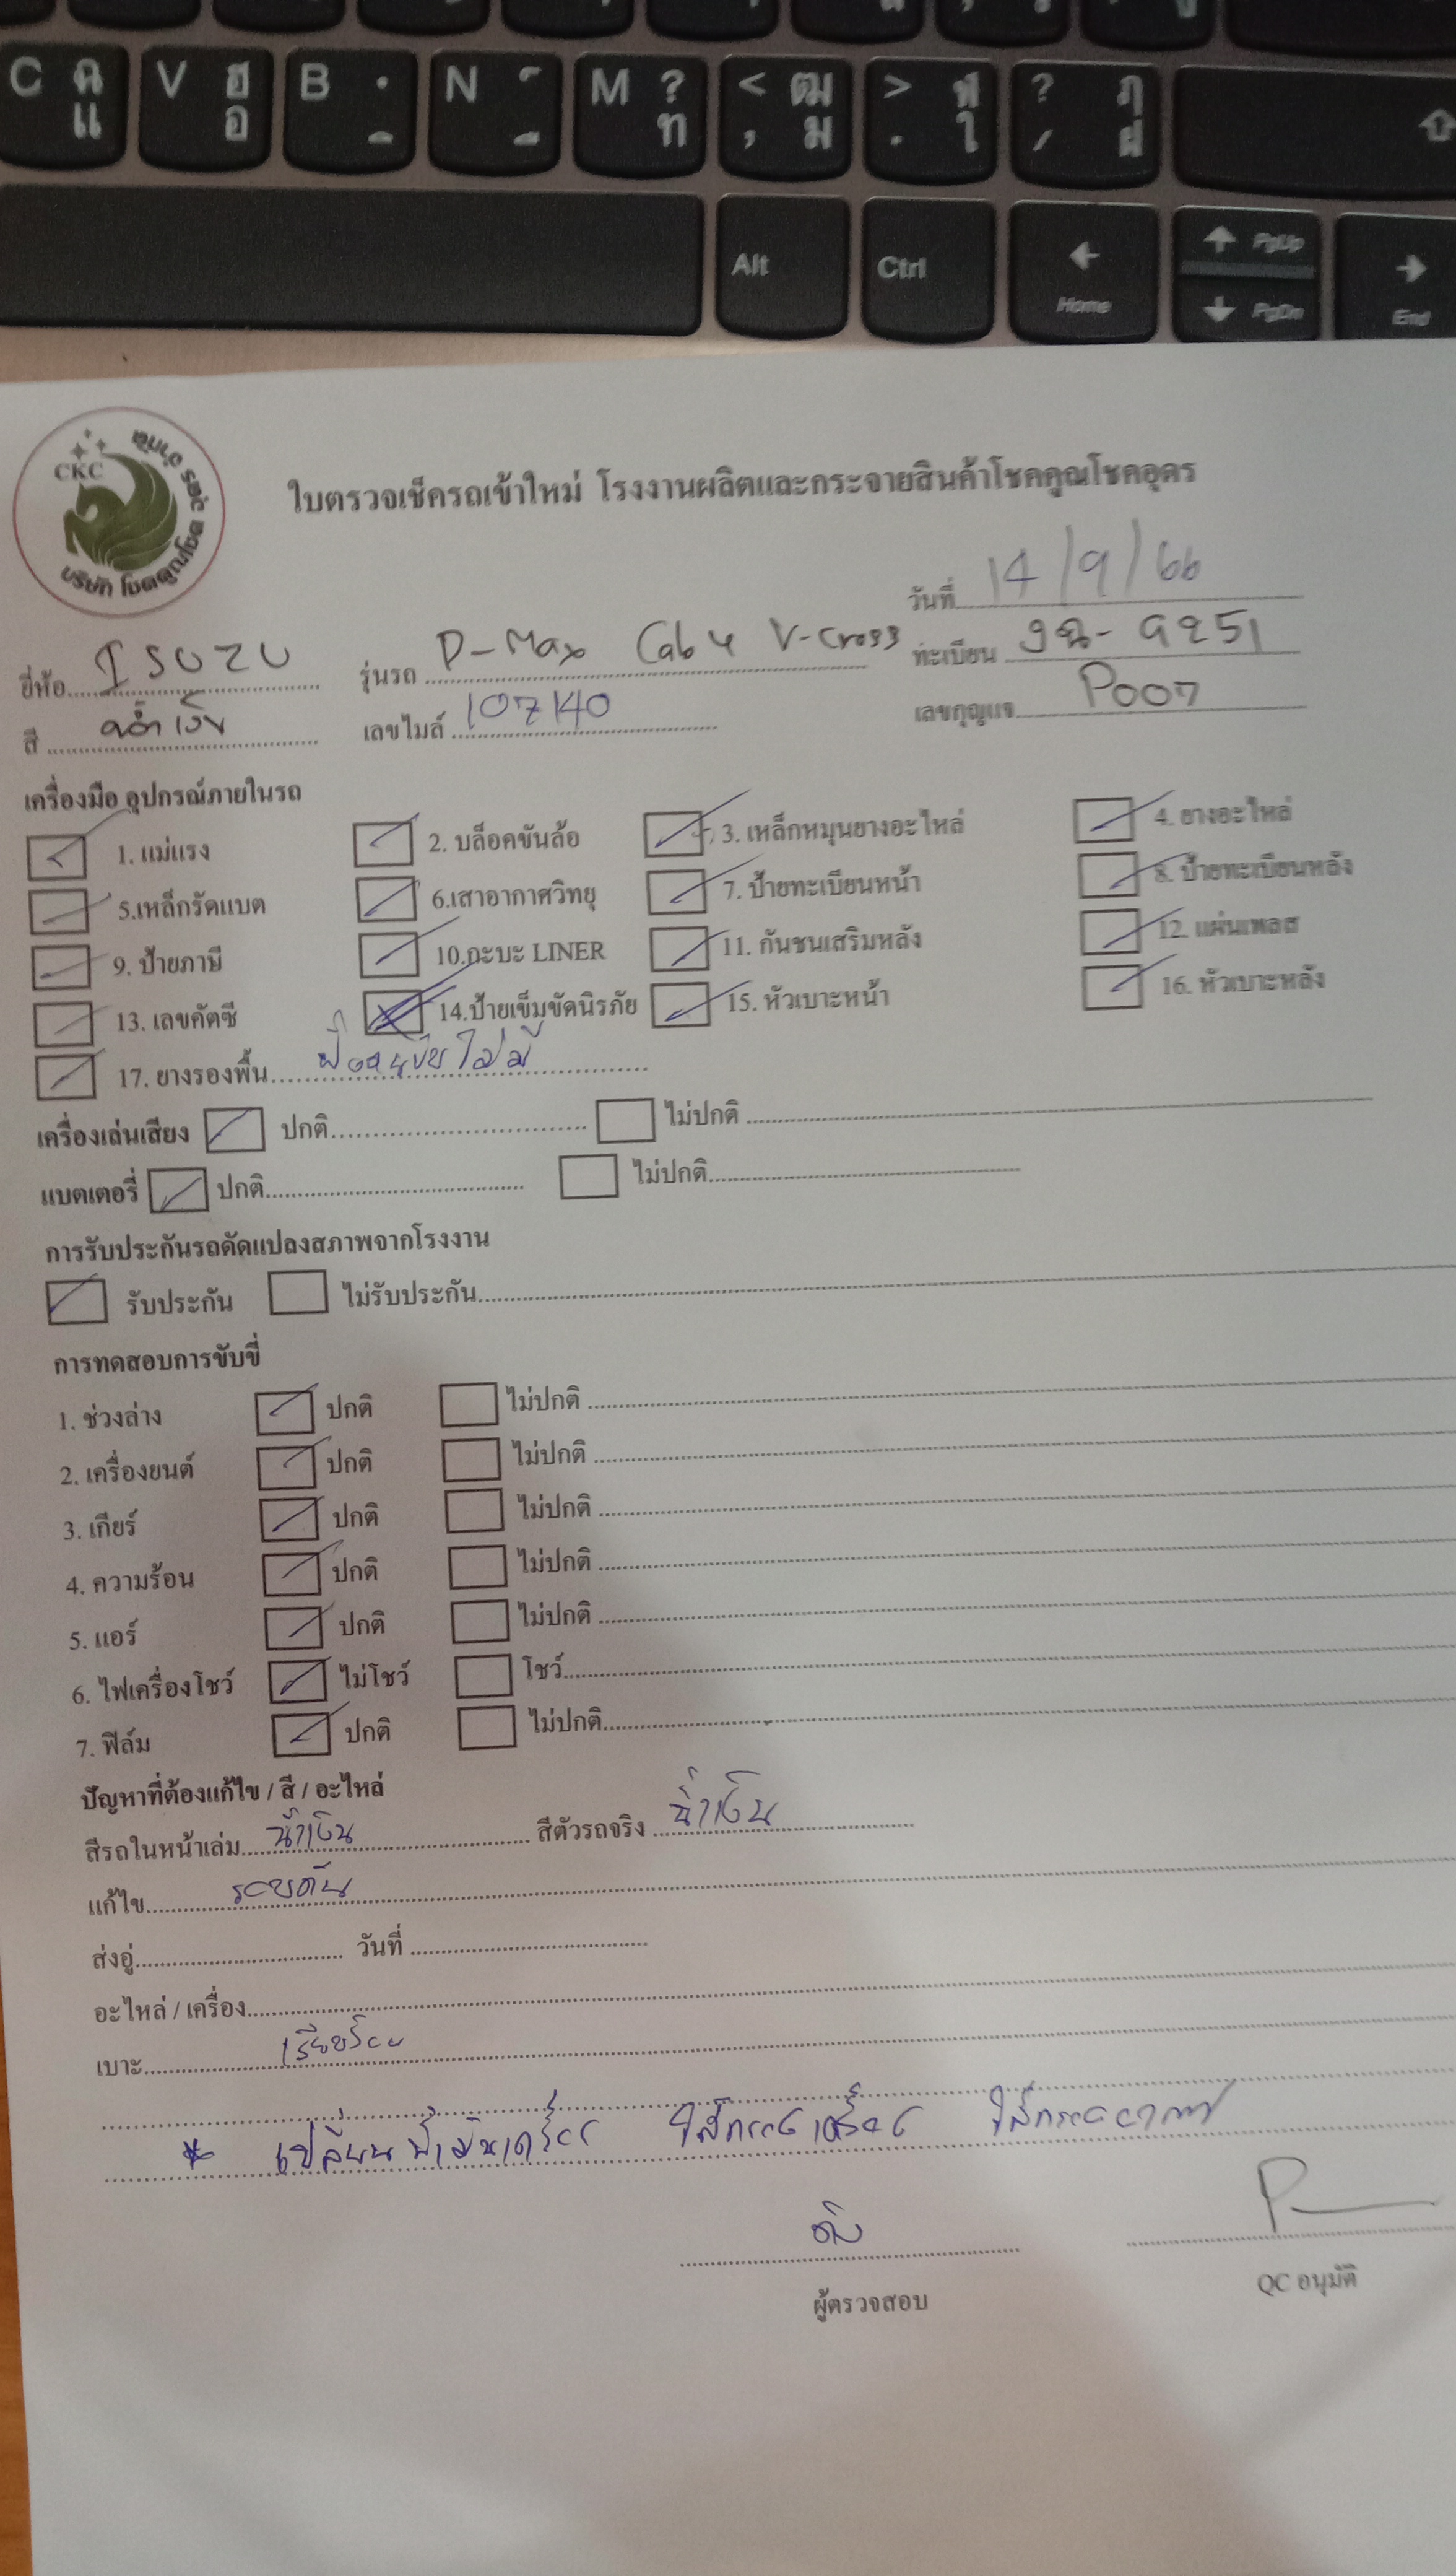 C ฉ แ V ฮ อ B ฺ ิ N ์ ื M ? ท < ฒ , ม > ฬ . ใ ? ฦ / ฝ
Alt Ctrl Home PgUp PgDn End
CKC
บริษัท โชคคูณโชค อุดร จำกัด
ใบตรวจเช็ครถเข้าใหม่ โรงงานผลิตและกระจายสินค้าโชคคูณโชคอุดร
วันที่ 14/9/66
ยี่ห้อ ISUZU รุ่นรถ D-Max Cab4 V-Cross ทะเบียน 9251
สี น้ำเงิน เลขไมล์ 107140 เลขกุญแจ P007
เครื่องมือ อุปกรณ์ภายในรถ
1. แม่แรง 2. บล็อคขันล้อ 3. เหล็กหมุนยางอะไหล่ 4. ยางอะไหล่
5.เหล็กรัดแบต 6.เสาอากาศวิทยุ 7. ป้ายทะเบียนหน้า 8. ป้ายทะเบียนหลัง
9. ป้ายภาษี 10.กะบะ LINER 11. กันชนเสริมหลัง 12. แผ่นเพลส
13. เลขคัตซี 14.ป้ายเข็มขัดนิรภัย 15. หัวเบาะหน้า 16. หัวเบาะหลัง
17. ยางรองพื้น ไม่มี
เครื่องเล่นเสียง ปกติ ไม่ปกติ
แบตเตอรี่ ปกติ ไม่ปกติ
การรับประกันรถดัดแปลงสภาพจากโรงงาน
รับประกัน ไม่รับประกัน
การทดสอบการขับขี่
1. ช่วงล่าง ปกติ ไม่ปกติ
2. เครื่องยนต์ ปกติ ไม่ปกติ
3. เกียร์ ปกติ ไม่ปกติ
4. ความร้อน ปกติ ไม่ปกติ
5. แอร์ ปกติ ไม่ปกติ
6. ไฟเครื่องโชว์ ไม่โชว์ โชว์
7. ฟิล์ม ปกติ ไม่ปกติ
ปัญหาที่ต้องแก้ไข / สี / อะไหล่
สีรถในหน้าเล่ม น้ำเงิน สีตัวรถจริง น้ำเงิน
แก้ไข รอบคัน
ส่งอู่ วันที่
อะไหล่ / เครื่อง
เบาะ เรียบร้อย
* เปลี่ยน น้ำมันเครื่อง ไส้กรองเครื่อง ไส้กรองอากาศ
ผู้ตรวจสอบ QC อนุมัติ